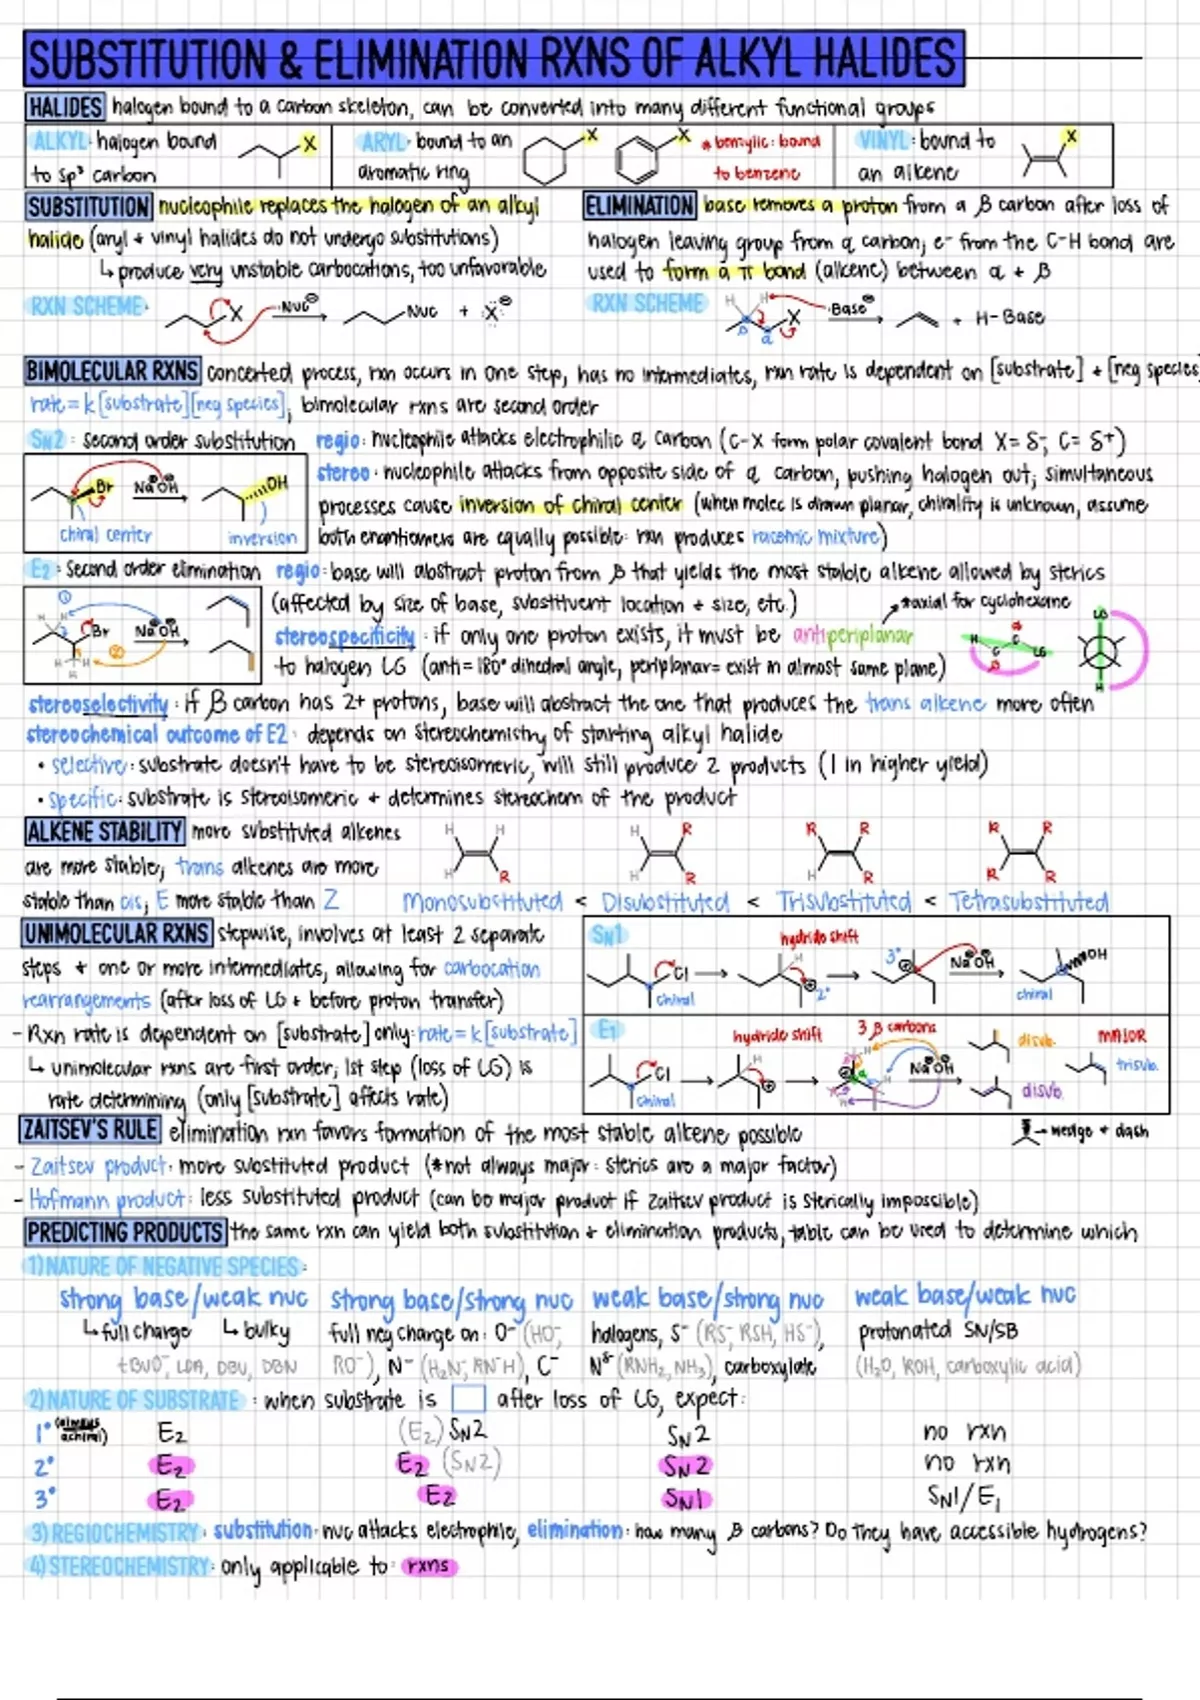 SUBSTITUTION & ELIMINATION RXNS OF ALKYL HALIDES
HALIDES halogen bound to a carbon skeleton, can be converted into many different functional groups
ALKYL: halogen bound
to sp³ carbon
X
ARYL: bound to an
aromatic ring
X
X
* benzylic: bound
to benzene
VINYL: bound to
an alkene
X
SUBSTITUTION nucleophile replaces the halogen of an alkyl
halide (aryl + vinyl halides do not undergo substitutions)
↳ produce very unstable carbocations, too unfavorable
RXN SCHEME:
X Nuc⊖ → Nuc + X⊖
ELIMINATION base removes a proton from a β carbon after loss of
halogen leaving group from α carbon; e⁻ from the C-H bond are
used to form a π bond (alkene) between α + β
RXN SCHEME
H H X β α Base⊖ → + H-Base
BIMOLECULAR RXNS concerted process, rxn occurs in one step, has no intermediates, rxn rate is dependent on [substrate] + [neg species
rate = k[substrate][neg species], bimolecular rxns are second order
SN2: second order substitution
regio: nucleophile attacks electrophilic α carbon (C-X form polar covalent bond X= δ⁻, C= δ⁺)
Br Na⊕OH⊖ → OH
chiral center inversion
stereo: nucleophile attacks from opposite side of α carbon, pushing halogen out; simultaneous
processes cause inversion of chiral center (when molec is drawn planar, chirality is unknown, assume
both enantiomers are equally possible: rxn produces racemic mixture)
E2: second order elimination regio: base will abstract proton from β that yields the most stable alkene allowed by sterics
(affected by size of base, substituent location + size, etc.)
*axial for cyclohexane
① H H Br Na⊕OH⊖ ② H H H
stereospecificity: if only one proton exists, it must be antiperiplanar
to halogen LG (anti = 180° dihedral angle, periplanar = exist in almost same plane)
H C C LG
LG H
stereoselectivity: if β carbon has 2+ protons, base will abstract the one that produces the trans alkene more often
stereochemical outcome of E2: depends on stereochemistry of starting alkyl halide
• selective: substrate doesn't have to be stereoisomeric, will still produce 2 products (1 in higher yield)
• specific: substrate is stereoisomeric + determines stereochem of the product
ALKENE STABILITY more substituted alkenes
are more stable; trans alkenes are more
stable than cis; E more stable than Z
H H H R
H R H R
R R H R
R R R R
Monosubstituted < Disubstituted < Trisubstituted < Tetrasubstituted
UNIMOLECULAR RXNS stepwise, involves at least 2 separate
steps + one or more intermediates, allowing for carbocation
rearrangements (after loss of LG + before proton transfer)
- Rxn rate is dependent on [substrate] only: rate = k[substrate]
↳ unimolecular rxns are first order; 1st step (loss of LG) is
rate determining (only [substrate] affects rate)
SN1
hydride shift
Cl → H ⊕ → 3° ⊕ Na⊕OH⊖ → OH
chiral 2° chiral
E1
hydride shift 3 β carbons
Cl → H ⊕ → H Na⊕OH⊖ →
chiral
disub.
disub.
MAJOR
trisub.
→ wedge + dash
ZAITSEV'S RULE elimination rxn favors formation of the most stable alkene possible
- Zaitsev product: more substituted product (*not always major: sterics are a major factor)
- Hofmann product: less substituted product (can be major product if Zaitsev product is sterically impossible)
PREDICTING PRODUCTS the same rxn can yield both substitution + elimination products, table can be used to determine which
1) NATURE OF NEGATIVE SPECIES:
strong base/weak nuc strong base/strong nuc weak base/strong nuc weak base/weak nuc
↳ full charge ↳ bulky full neg charge on: O⁻ (HO⁻, halogens, S⁻ (RS⁻ RSH, HS⁻), protonated SN/SB
tBuO⁻, LDA, DBU, DBN RO⁻), N⁻ (H₂N⁻, RN⁻H), C⁻ N^δ⁻ (RNH₂, NH₃), carboxylate (H₂O, ROH, carboxylic acid)
2) NATURE OF SUBSTRATE: when substrate is after loss of LG, expect:
1° (always achiral) E2 (E2) SN2 SN2 no rxn
2° E2 E2 (SN2) SN2 no rxn
3° E2 E2 SN1 SN1/E1
3) REGIOCHEMISTRY: substitution: nuc attacks electrophile, elimination: how many β carbons? Do they have accessible hydrogens?
4) STEREOCHEMISTRY: only applicable to: rxns